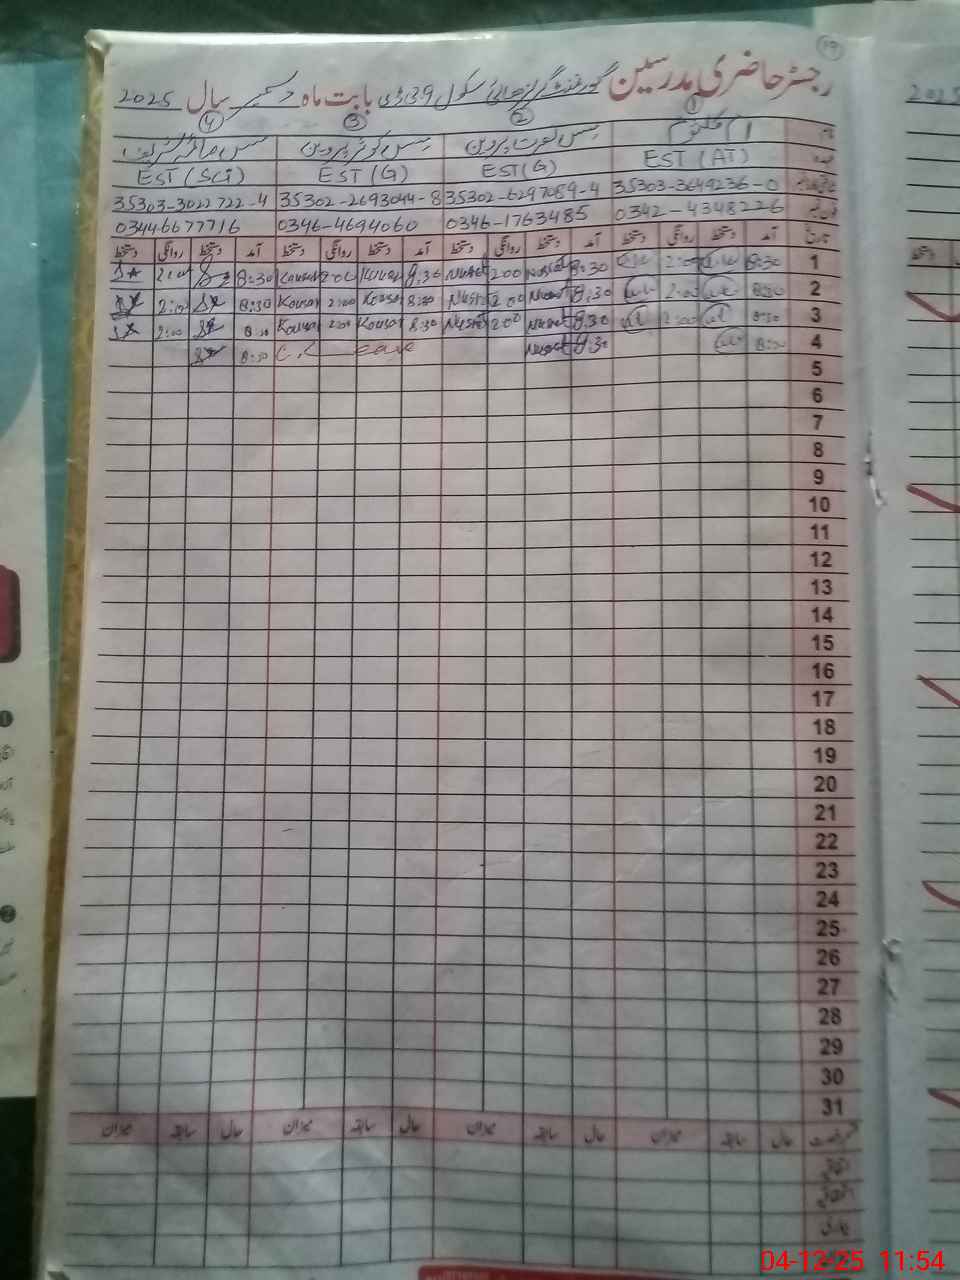 19
رجسٹر حاضری مدرسین گورنمنٹ گرلز ہائی سکول 39 ڈی بابت ماہ دسمبر سال 2025
① ② ③ ④
نام ام کلثوم مس نصرت پروین مس کوثر پروین مس صائمہ شریف
عہدہ EST (AT) EST (G) EST (G) EST (SCI)
35303-3649236-0 35302-6297089-4 35302-2693044-8 35303-3022722-4
فون نمبر 0342-4348226 0346-1763485 0346-4694060 0344-6677716
تاریخ آمد دستخط روانگی دستخط آمد دستخط روانگی دستخط آمد دستخط روانگی دستخط آمد دستخط روانگی دستخط
1 8:30 2:00 8:30 Nusrat 2:00 Nusrat 8:30 Kousar 2:00 Kousar 8:30 2:00
2 8:30 2:00 8:30 Nusrat 2:00 Nusrat 8:30 Kousar 2:00 Kousar 8:30 2:00
3 8:30 2:00 8:30 Nusrat 2:00 Nusrat 8:30 Kousar 2:00 Kousar 8:30 2:00
4 8:30 8:30 Nusrat C.Leave 8:30
5
6
7
8
9
10
11
12
13
14
15
16
17
18
19
20
21
22
23
24
25
26
27
28
29
30
31
حال سابقہ میزان حال سابقہ میزان حال سابقہ میزان حال سابقہ میزان
اتفاقیہ
استحقاقیہ
بیماری
2025
دستخط
04-12-25 11:54